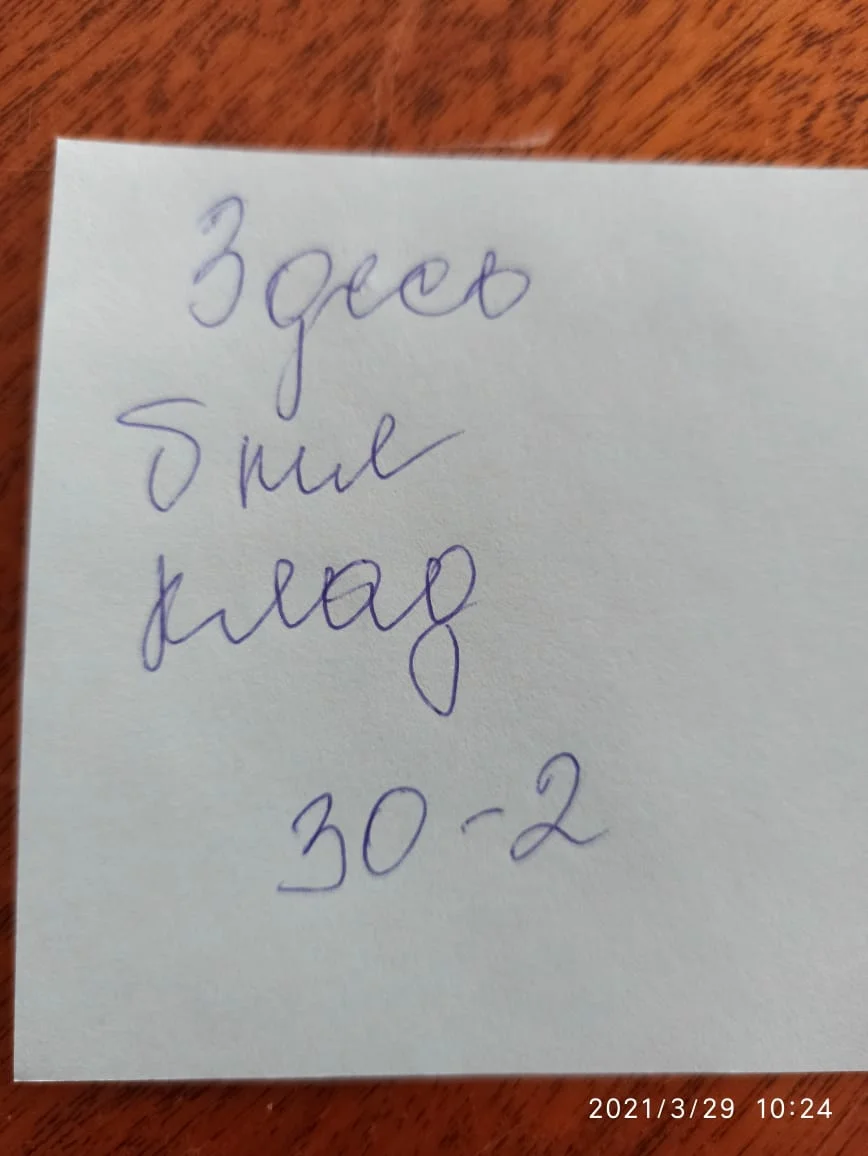 Здесь
был
клад
30-2
2021/3/29 10:24